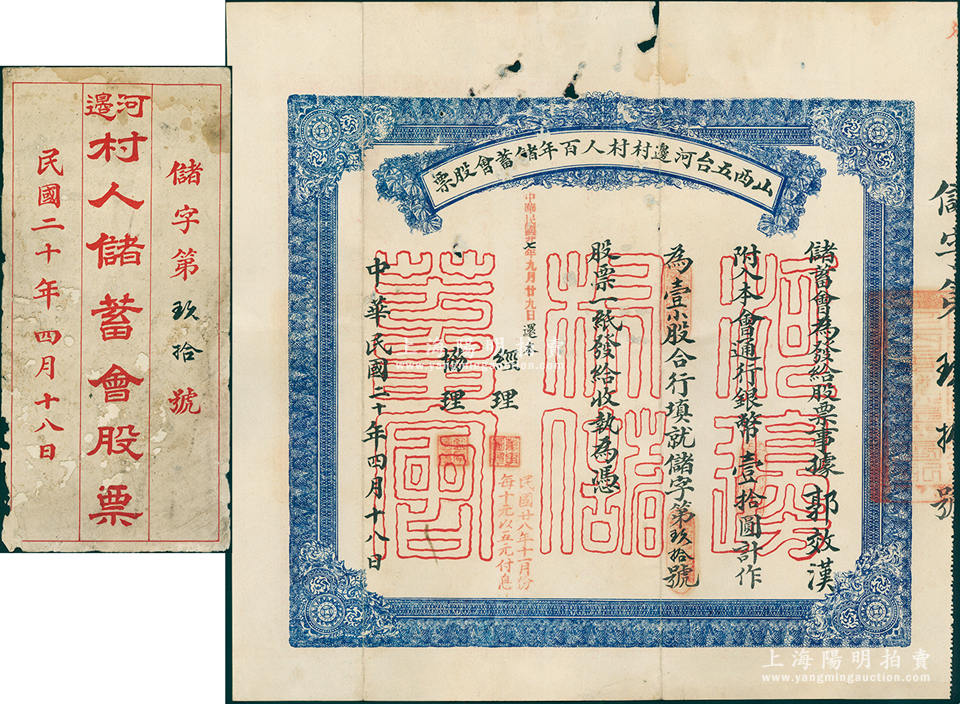 儲字第玖拾號
河邊
村人儲蓄會股票
民國二十年四月十八日
山西五台河邊村村人百年儲蓄會股票
儲字第玖拾號
儲蓄會為發給股票事據郭效漢
附入本會通行銀幣壹拾圓計作
為壹小股合行填就儲字第玖拾號
股票一紙發給收執為憑
中華民國廿七年九月廿九日還本
經理
協理
民國廿八年十一月份
每十元以五元付息
中華民國二十年四月十八日
上海陽明拍賣
www.yangmingauction.com
上海陽明拍賣
www.yangmingauction.com